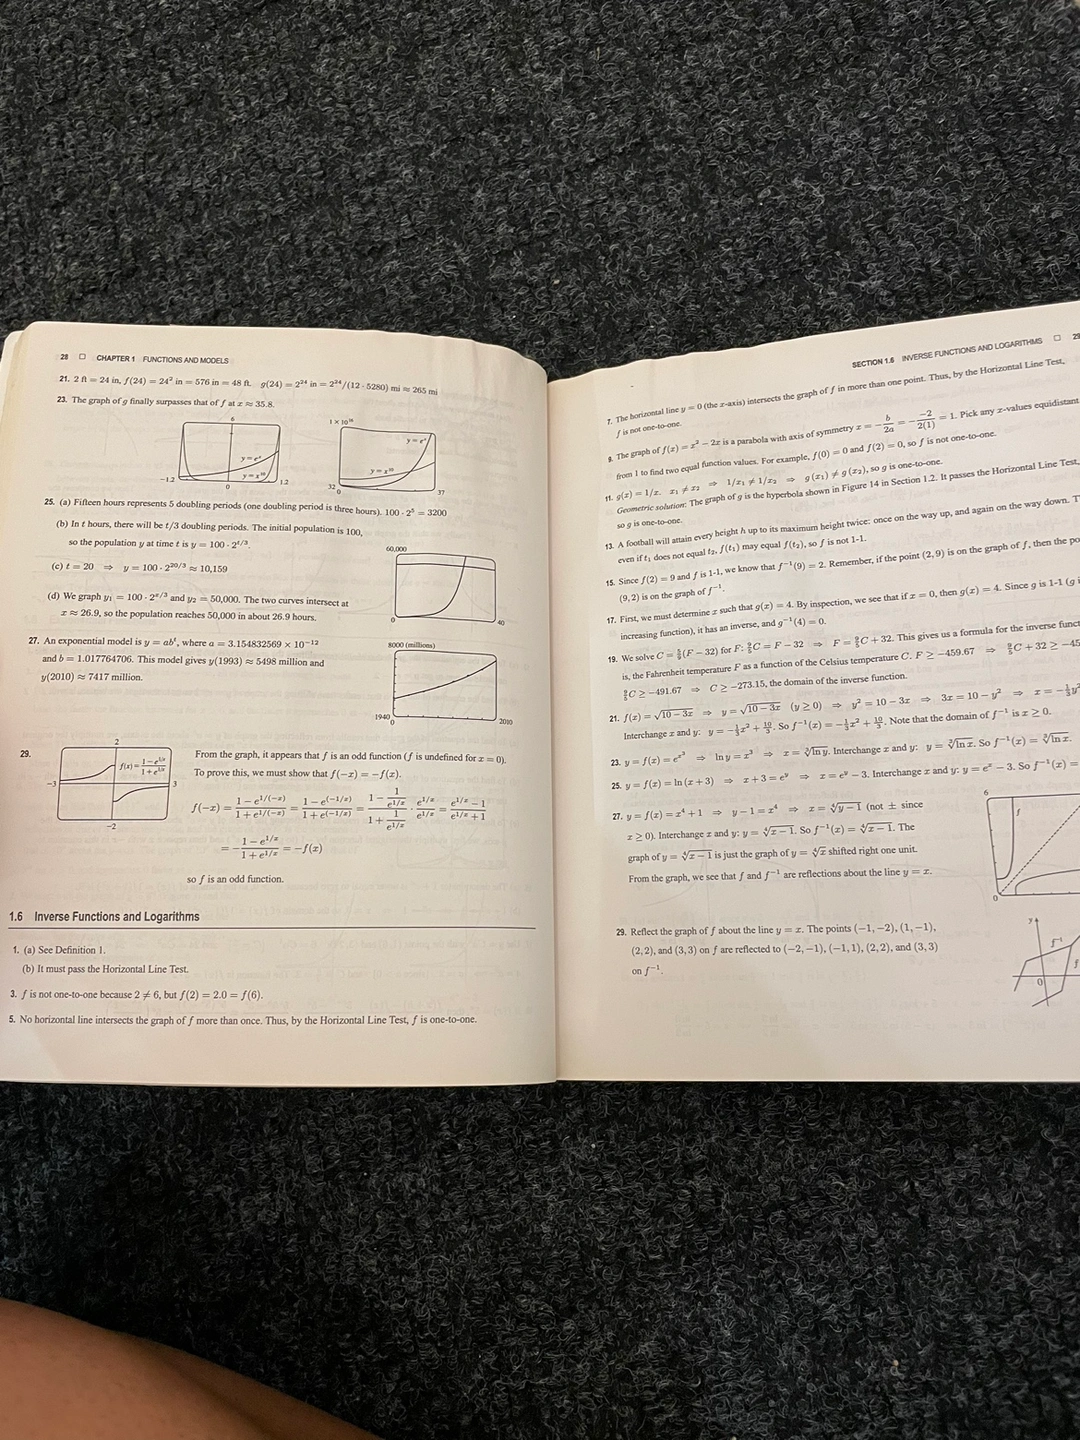 28 □ CHAPTER 1 FUNCTIONS AND MODELS
21. 2 ft = 24 in, f(24) = 24² in = 576 in = 48 ft. g(24) = 2²⁴ in = 2²⁴/(12 · 5280) mi ≈ 265 mi
23. The graph of g finally surpasses that of f at x ≈ 35.8.
6
y = eˣ
y = x¹⁰
−1.2
0
1.2
1 × 10¹⁶
y = eˣ
y = x¹⁰
32
0
37
25. (a) Fifteen hours represents 5 doubling periods (one doubling period is three hours). 100 · 2⁵ = 3200
(b) In t hours, there will be t/3 doubling periods. The initial population is 100,
so the population y at time t is y = 100 · 2^(t/3).
(c) t = 20 ⇒ y = 100 · 2^(20/3) ≈ 10,159
(d) We graph y₁ = 100 · 2^(x/3) and y₂ = 50,000. The two curves intersect at
x ≈ 26.9, so the population reaches 50,000 in about 26.9 hours.
60,000
0
40
27. An exponential model is y = abᵗ, where a = 3.154832569 × 10⁻¹²
and b = 1.017764706. This model gives y(1993) ≈ 5498 million and
y(2010) ≈ 7417 million.
8000 (millions)
1940
0
2010
29.
2
f(x) = (1 − e^(1/x))/(1 + e^(1/x))
−3
3
−2
From the graph, it appears that f is an odd function (f is undefined for x = 0).
To prove this, we must show that f(−x) = −f(x).
f(−x) = (1 − e^(1/(−x)))/(1 + e^(1/(−x))) = (1 − e^(−1/x))/(1 + e^(−1/x)) = (1 − 1/e^(1/x))/(1 + 1/e^(1/x)) · e^(1/x)/e^(1/x) = (e^(1/x) − 1)/(e^(1/x) + 1)
= −(1 − e^(1/x))/(1 + e^(1/x)) = −f(x)
so f is an odd function.
1.6 Inverse Functions and Logarithms
1. (a) See Definition 1.
(b) It must pass the Horizontal Line Test.
3. f is not one-to-one because 2 ≠ 6, but f(2) = 2.0 = f(6).
5. No horizontal line intersects the graph of f more than once. Thus, by the Horizontal Line Test, f is one-to-one.
SECTION 1.6 INVERSE FUNCTIONS AND LOGARITHMS □ 29
7. The horizontal line y = 0 (the x-axis) intersects the graph of f in more than one point. Thus, by the Horizontal Line Test,
f is not one-to-one.
9. The graph of f(x) = x² − 2x is a parabola with axis of symmetry x = −b/2a = −(−2)/2(1) = 1. Pick any x-values equidistant
from 1 to find two equal function values. For example, f(0) = 0 and f(2) = 0, so f is not one-to-one.
11. g(x) = 1/x. x₁ ≠ x₂ ⇒ 1/x₁ ≠ 1/x₂ ⇒ g(x₁) ≠ g(x₂), so g is one-to-one.
Geometric solution: The graph of g is the hyperbola shown in Figure 14 in Section 1.2. It passes the Horizontal Line Test,
so g is one-to-one.
13. A football will attain every height h up to its maximum height twice: once on the way up, and again on the way down. T
even if t₁ does not equal t₂, f(t₁) may equal f(t₂), so f is not 1-1.
15. Since f(2) = 9 and f is 1-1, we know that f⁻¹(9) = 2. Remember, if the point (2, 9) is on the graph of f, then the po
(9, 2) is on the graph of f⁻¹.
17. First, we must determine x such that g(x) = 4. By inspection, we see that if x = 0, then g(x) = 4. Since g is 1-1 (g i
increasing function), it has an inverse, and g⁻¹(4) = 0.
19. We solve C = 5/9(F − 32) for F: 9/5C = F − 32 ⇒ F = 9/5C + 32. This gives us a formula for the inverse funct
is, the Fahrenheit temperature F as a function of the Celsius temperature C. F ≥ −459.67 ⇒ 9/5C + 32 ≥ −45
9/5C ≥ −491.67 ⇒ C ≥ −273.15, the domain of the inverse function.
21. f(x) = √(10 − 3x) ⇒ y = √(10 − 3x) (y ≥ 0) ⇒ y² = 10 − 3x ⇒ 3x = 10 − y² ⇒ x = −1/3y²
Interchange x and y: y = −1/3x² + 10/3. So f⁻¹(x) = −1/3x² + 10/3. Note that the domain of f⁻¹ is x ≥ 0.
23. y = f(x) = e^(x³) ⇒ ln y = x³ ⇒ x = ∛(ln y). Interchange x and y: y = ∛(ln x). So f⁻¹(x) = ∛(ln x).
25. y = f(x) = ln (x + 3) ⇒ x + 3 = eʸ ⇒ x = eʸ − 3. Interchange x and y: y = eˣ − 3. So f⁻¹(x) =
27. y = f(x) = x⁴ + 1 ⇒ y − 1 = x⁴ ⇒ x = ∜(y − 1) (not ± since
x ≥ 0). Interchange x and y: y = ∜(x − 1). So f⁻¹(x) = ∜(x − 1). The
graph of y = ∜(x − 1) is just the graph of y = ∜x shifted right one unit.
From the graph, we see that f and f⁻¹ are reflections about the line y = x.
6
f
0
29. Reflect the graph of f about the line y = x. The points (−1, −2), (1, −1),
(2, 2), and (3, 3) on f are reflected to (−2, −1), (−1, 1), (2, 2), and (3, 3)
on f⁻¹.
y
f⁻¹
f
0